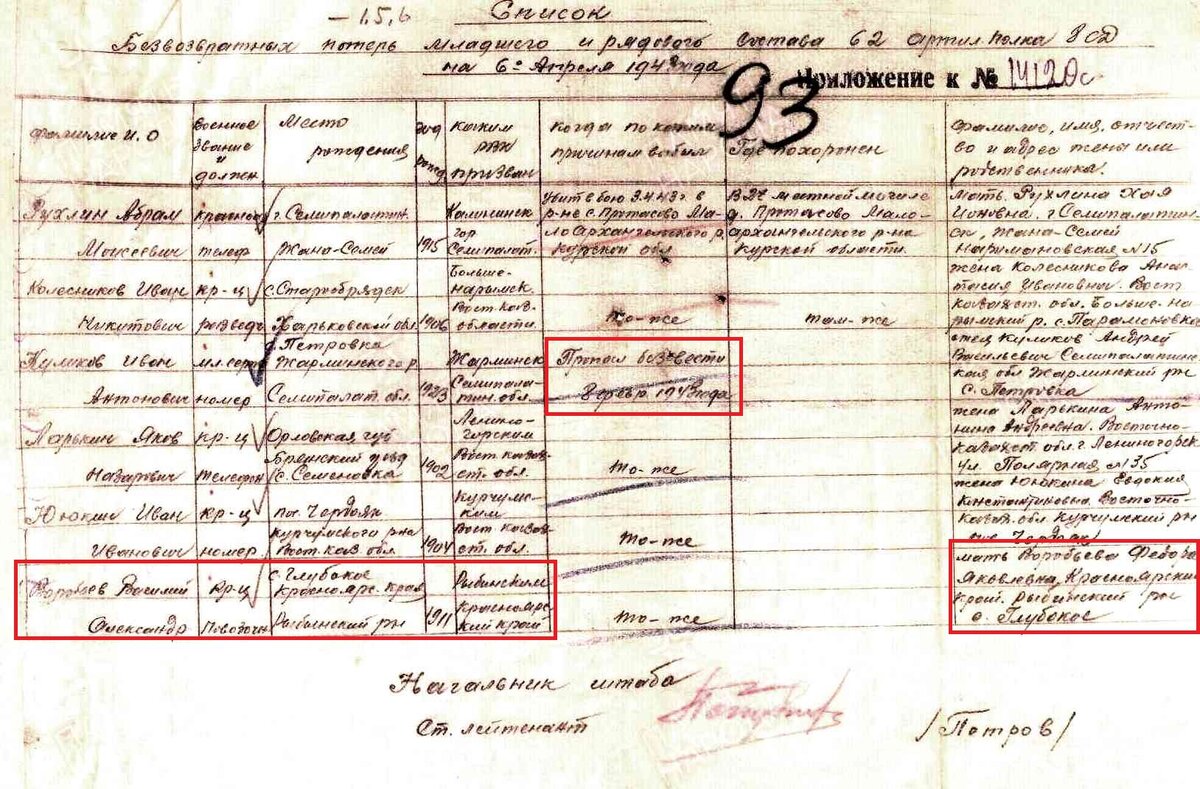 – 1.5.6
Список
Безвозвратных потерь младшего и рядового состава 62 артил. полка 8 сд
на 6е Апреля 1943 года
93
Приложение к № 14120с
Фамилие И.О
Военное звание и должен
Место рождения
год рожд.
каким РВК призван
когда по каким причинам выбыл
Где похоронен
Фамилию, имя, отчество и адрес жены или родственника.
Рухлин Абрам Моисеевич
красноа телеф
г. Семипалатин Жана-Семей
1915
Калининск гор Семипалат.
Убит в бою 3.4.43г. в р-не с. Протасово Мало Архангельского р. Курской обл
В братской могиле д. Протасово Малоархангельского р-на Курской области
Мать Рухлина Хая Ионовна. г Семипалатинск, Жана-Семей Наримановская №15
Колесников Иван Никитович
кр-ц разведч
с. Старобрядск Харьковской обл
1906
Больше-нарымск Вост каз. области
то-же
там-же
жена Колесникова Анастасия Ивановна. Вост казахст. обл. Больше-нарымский р. с. Парамоновка
Куликов Иван Антонович
мл. серж номер
с. Петровка Жарминского р. Семипалат. обл.
1923
Жарминск Семипалатин. обл.
Пропал без-вести
8 февр. 1943 года
отец Куликов Андрей Васильевич Семипалатинская обл Жарминский рн с. Петровка
Ларькин Яков Назарович
кр-ц телефон
Орловская, губ Брянский уезд с. Семеновка
1902
Лениногорским Вост казахст. обл.
то-же
жена Ларькина Антонина Андреевна. Восточно-казахст. обл. г Лениногорск ул. Полярная, №135
Ююкин Иван Иванович
кр-ц номер
пос. Чердояк Курчумского рна Вост. каз. обл
1904
Курчумским Вост казах ст. обл.
то-же
жена Ююкина Евдокия Константиновна Восточно-казах. обл. Курчумский рн
Воробьев Василий Александр
кр-ц повозочн
с. Глубокое Красноярс. края Рыбинский рн
1911
Рыбинским Красноярский край
то-же
мать Воробьева Федора Яковлевна, Красноярский край. Рыбинский рн с. Глубокое
Начальник штаба
Ст. лейтенант
/Петров/